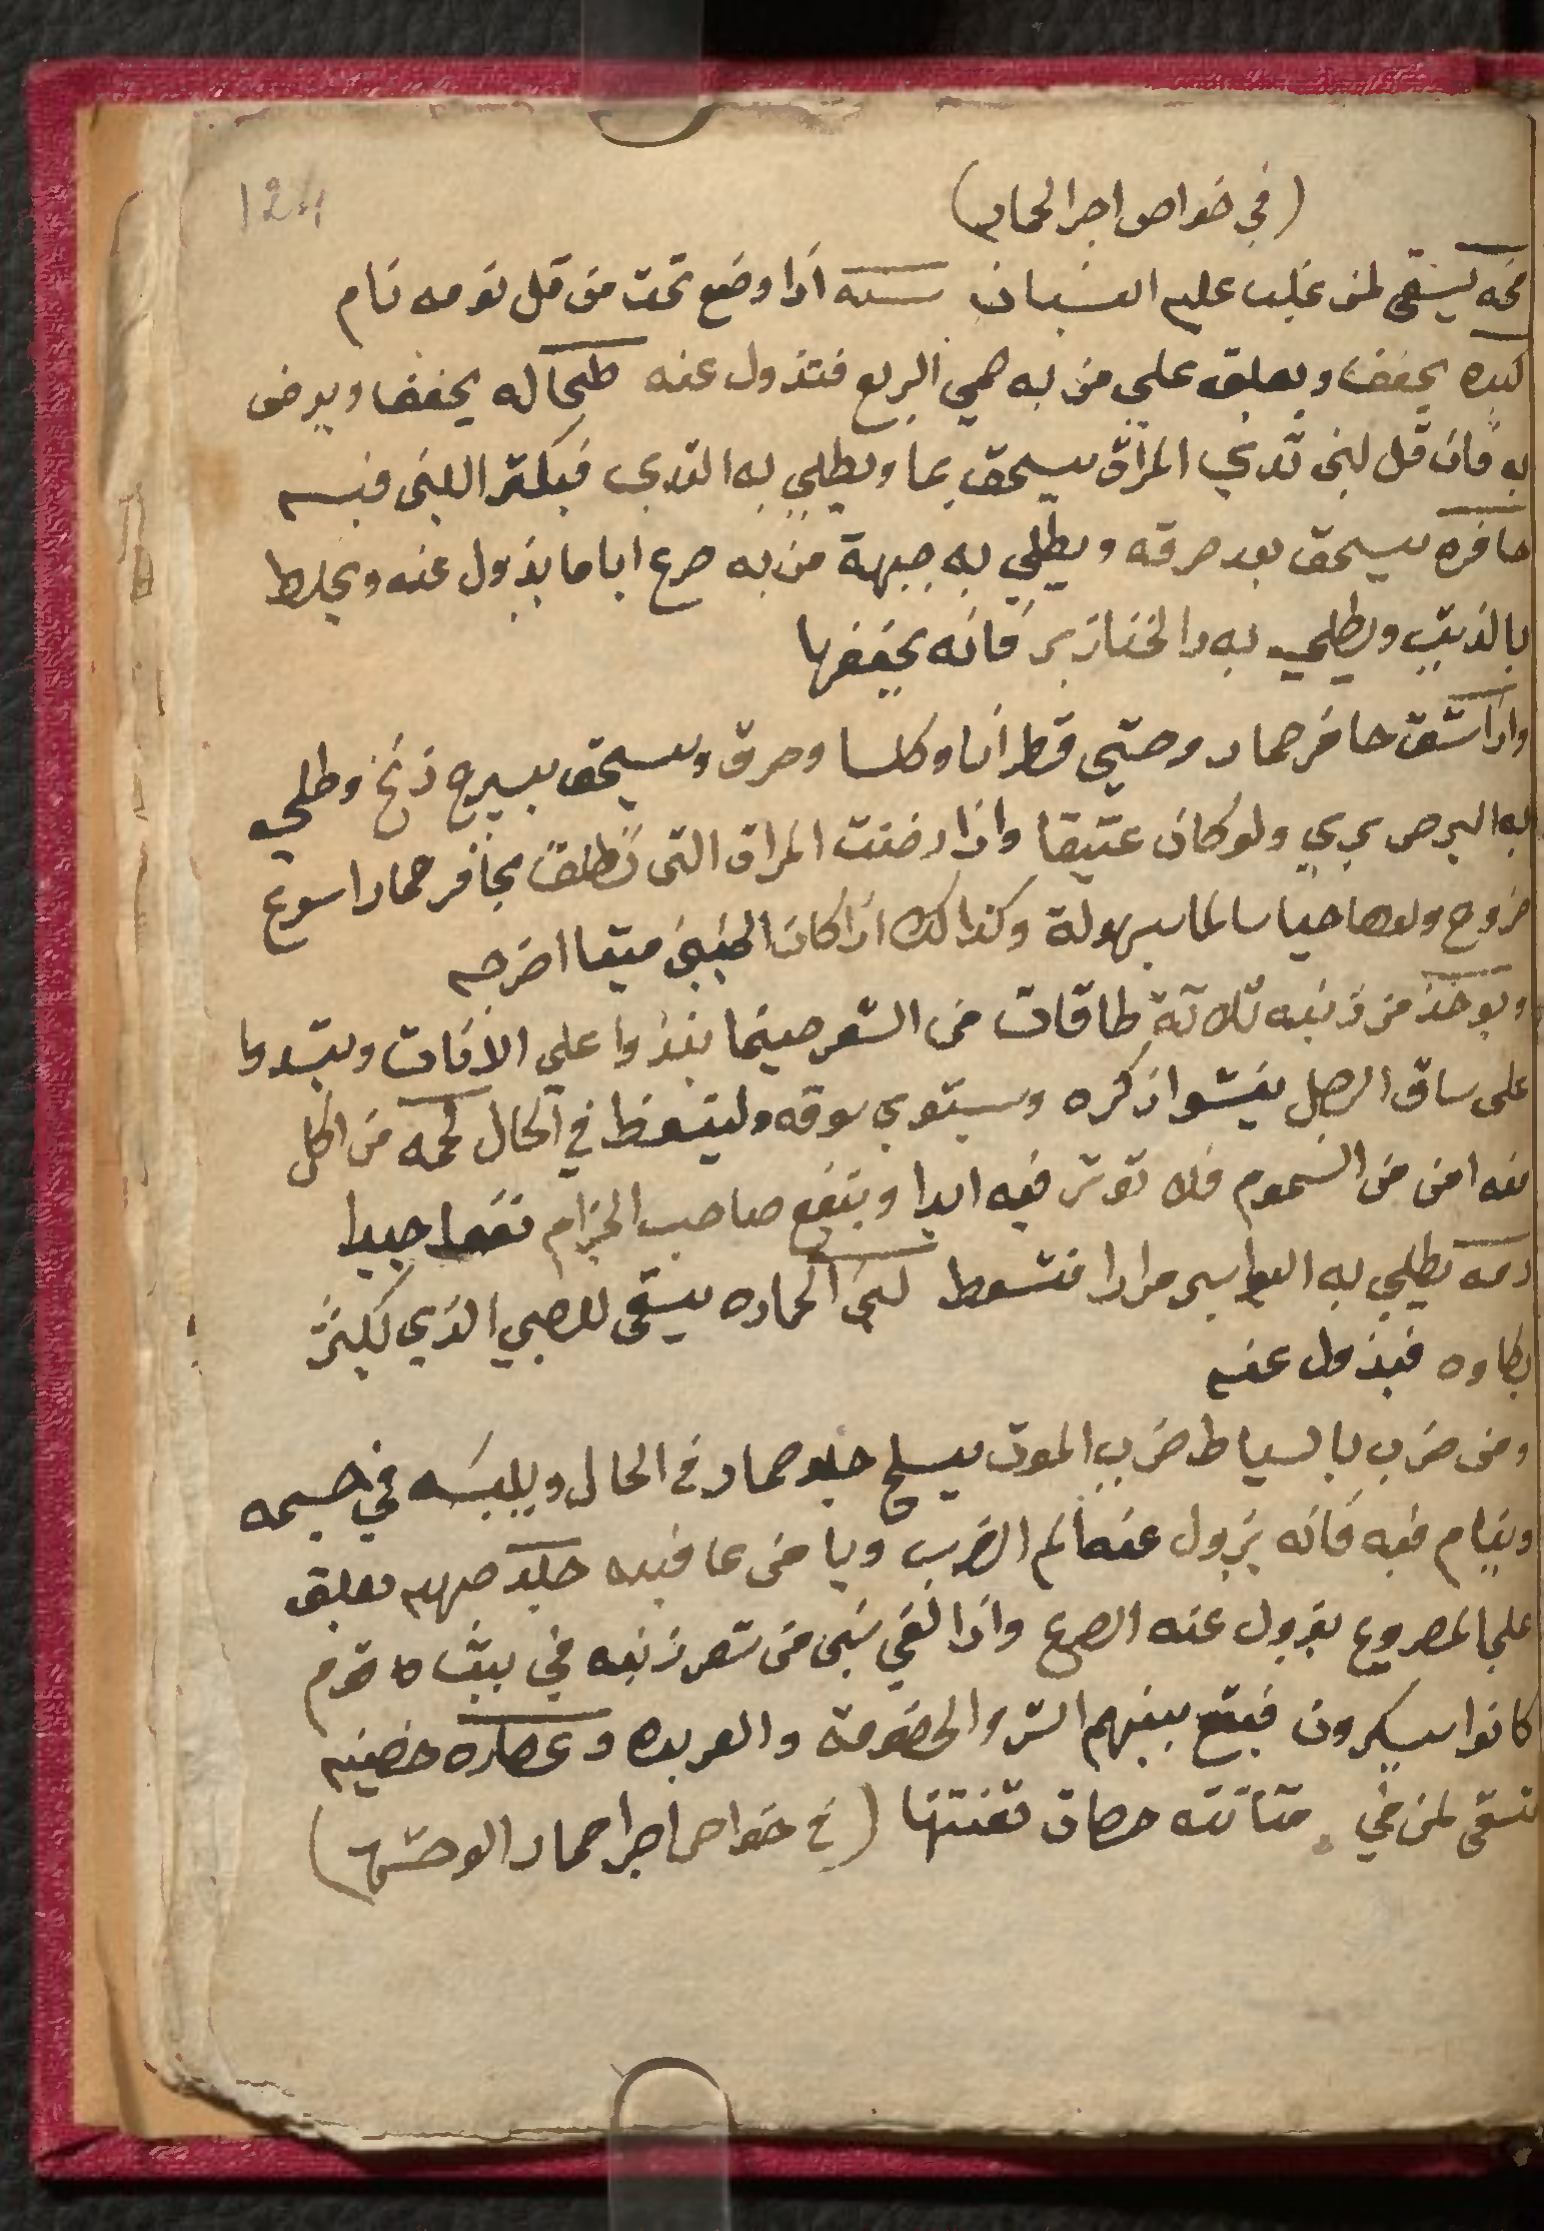 124
(في خواص اجز الحمار)
مخه يسقي لمن غلب عليه النسيان سنه اذا وضع تحت من قل نومه نام
كبده يجفف ويعلق علي من به حمي الربع فتزول عنه طحاله يجفف ويرفض
به فان قل لبن ثدي المراة يسحق بما ويطلي به الثدي فيكثر اللبن فيه
حافره يسحق بعد حرقه ويطلي به جبهة من به صرع اياما يزول عنه ويخلط
بالزيت ويطلي به دا الخنازير فانه يجففها
واذا شق حافر حمار وحشي قطرانا وكلسا وحرق وسحق بسيرج زنخ وطلي
به البرص بري ولو كان عتيقا واذا دخنت المراة التي تطلق بحافر حمار اسرع
خروج ولدها حيا سالما بسهولة وكذالك اذا كان الجنين ميتا اخرجه
ويوخذ من ذنبه ثلاثة طاقات من الشعر حينما ينزوا علي الاتان ويشدوا
علي ساق الرجل ينشوا ذكره ويستوي سوقه وينعظ في الحال لحمه من اكل
منه امن من السموم فلا توثر فيه ابدا وينفع صاحب الجزام نفعا جيدا
دمه يطلي به البواسير مرارا فتسقط لبن الحماره يسقي للصبي الذي يكثر
بكاوه فيزول عنه
ومن ضرب بالسياط ضرب الموت يسلخ جلد حمار في الحال ويلبسه في جسمه
وينام فيه فانه يزول عنه الم الضرب ويا من عاقبته جلد جبهته يعلق
علي المصروع يزول عنه الصرع واذا القي شي من شعر ذنبه في بيت قوم
كانوا يسكرون فيقع بينهم الشر والخصومة والعربده وعصاره خصيته
تسقي لمن في مثانته حصاة تفتتها (في خواص اجزا حمار الوحش)